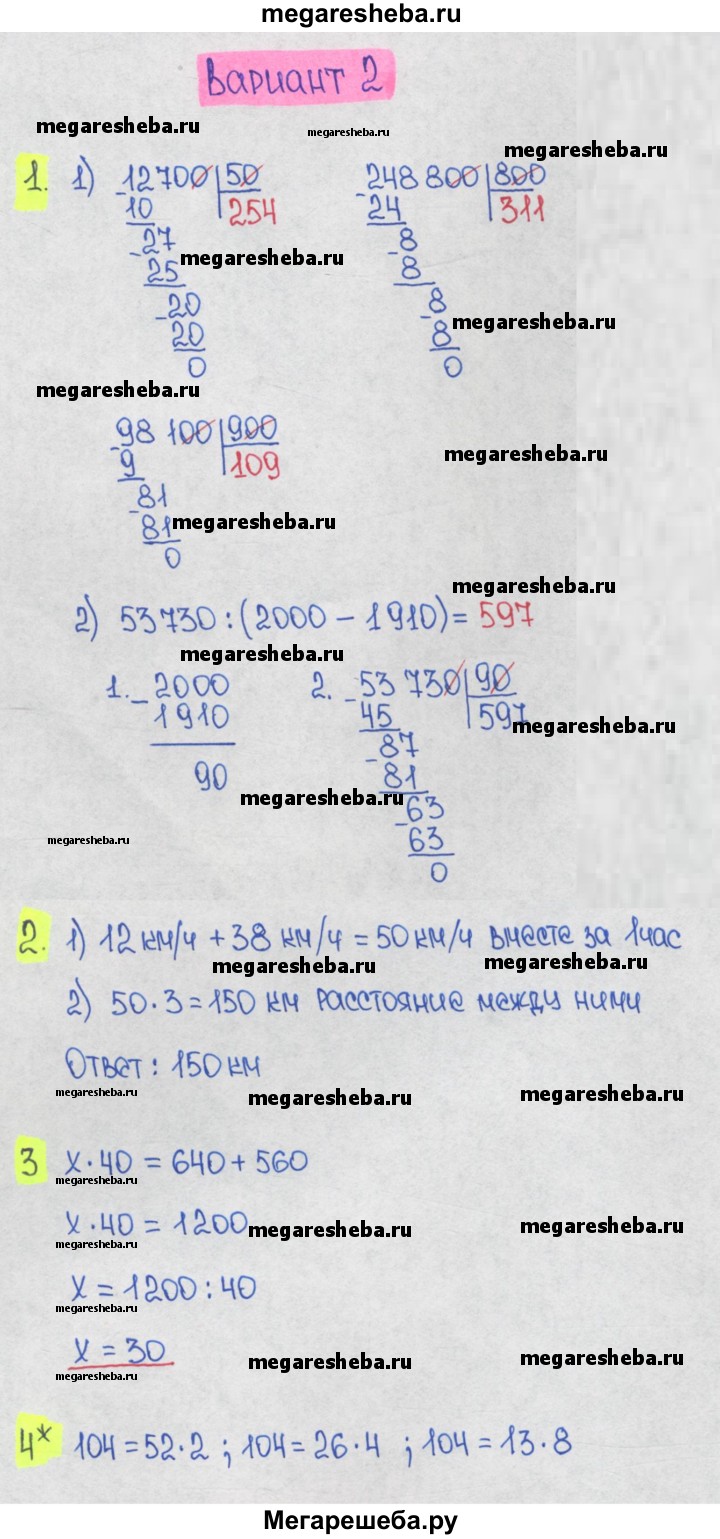 megaresheba.ru
Вариант 2
megaresheba.ru
megaresheba.ru
megaresheba.ru
1. 1) 12700 | 50
- 10 | 254
27
- 25
megaresheba.ru
20
- 20
0
248 800 | 800
- 24 | 311
8
- 8
8
megaresheba.ru
- 8
0
megaresheba.ru
98 100 | 900
- 9 | 109
megaresheba.ru
81
- 81
megaresheba.ru
0
megaresheba.ru
2) 53730 : (2000 - 1910) = 597
megaresheba.ru
1. - 2000
1910
90
2. - 53 730 | 90
45 | 597
megaresheba.ru
- 87
81
megaresheba.ru
- 63
63
megaresheba.ru
0
2. 1) 12 км/ч + 38 км/ч = 50 км/ч вместе за 1 час
megaresheba.ru
megaresheba.ru
2) 50 · 3 = 150 км расстояние между ними
Ответ: 150 км
megaresheba.ru
megaresheba.ru
megaresheba.ru
3 х · 40 = 640 + 560
megaresheba.ru
х · 40 = 1200
megaresheba.ru
megaresheba.ru
megaresheba.ru
х = 1200 : 40
megaresheba.ru
х = 30
megaresheba.ru
megaresheba.ru
megaresheba.ru
4* 104 = 52 · 2 ; 104 = 26 · 4 ; 104 = 13 · 8
Мегарешеба.ру